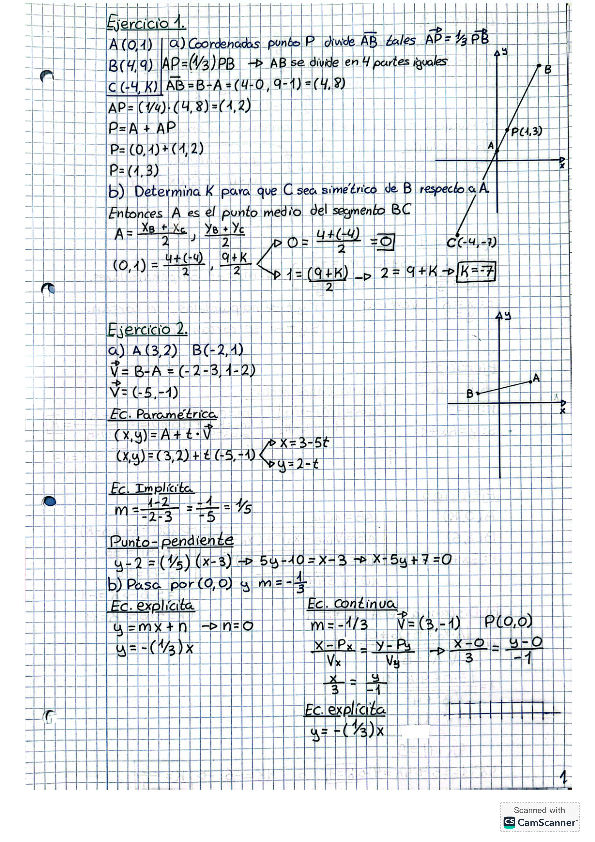 Ejercicio 1.
A(0,1) a) Coordenadas punto P divide AB tales AP = 1/3 PB
B(4,9) AP=(1/3)PB → AB se divide en 4 partes iguales
C(-4,K) AB=B-A=(4-0,9-1)=(4,8)
AP=(1/4)·(4,8)=(1,2)
P=A+AP
P=(0,1)+(1,2)
P=(1,3)
y
B
P(1,3)
A
x
C(-4,-7)
b) Determina K para que C sea simétrico de B respecto a A.
Entonces A es el punto medio del segmento BC
A = (xB + xC)/2 , (yB + yC)/2
(0,1) = (4+(-4))/2 , (9+K)/2
0 = (4+(-4))/2 = 0
1 = (9+K)/2 → 2=9+K → K=-7
Ejercicio 2.
a) A(3,2) B(-2,1)
V=B-A=(-2-3,1-2)
V=(-5,-1)
y
A
B
x
Ec. Paramétrica
(x,y)=A+t·V
(x,y)=(3,2)+t(-5,-1)
x=3-5t
y=2-t
Ec. Implícita
m = (1-2)/(-2-3) = -1/-5 = 1/5
Punto-pendiente
y-2=(1/5)(x-3) → 5y-10=x-3 → x-5y+7=0
b) Pasa por (0,0) y m=-1/3
Ec. explícita
y=mx+n → n=0
y=-(1/3)x
Ec. continua
m=-1/3 V=(3,-1) P(0,0)
(x-Px)/Vx = (y-Py)/Vy → (x-0)/3 = (y-0)/-1
x/3 = y/-1
Ec. explícita
y=-(1/3)x
1
Scanned with
CS CamScanner